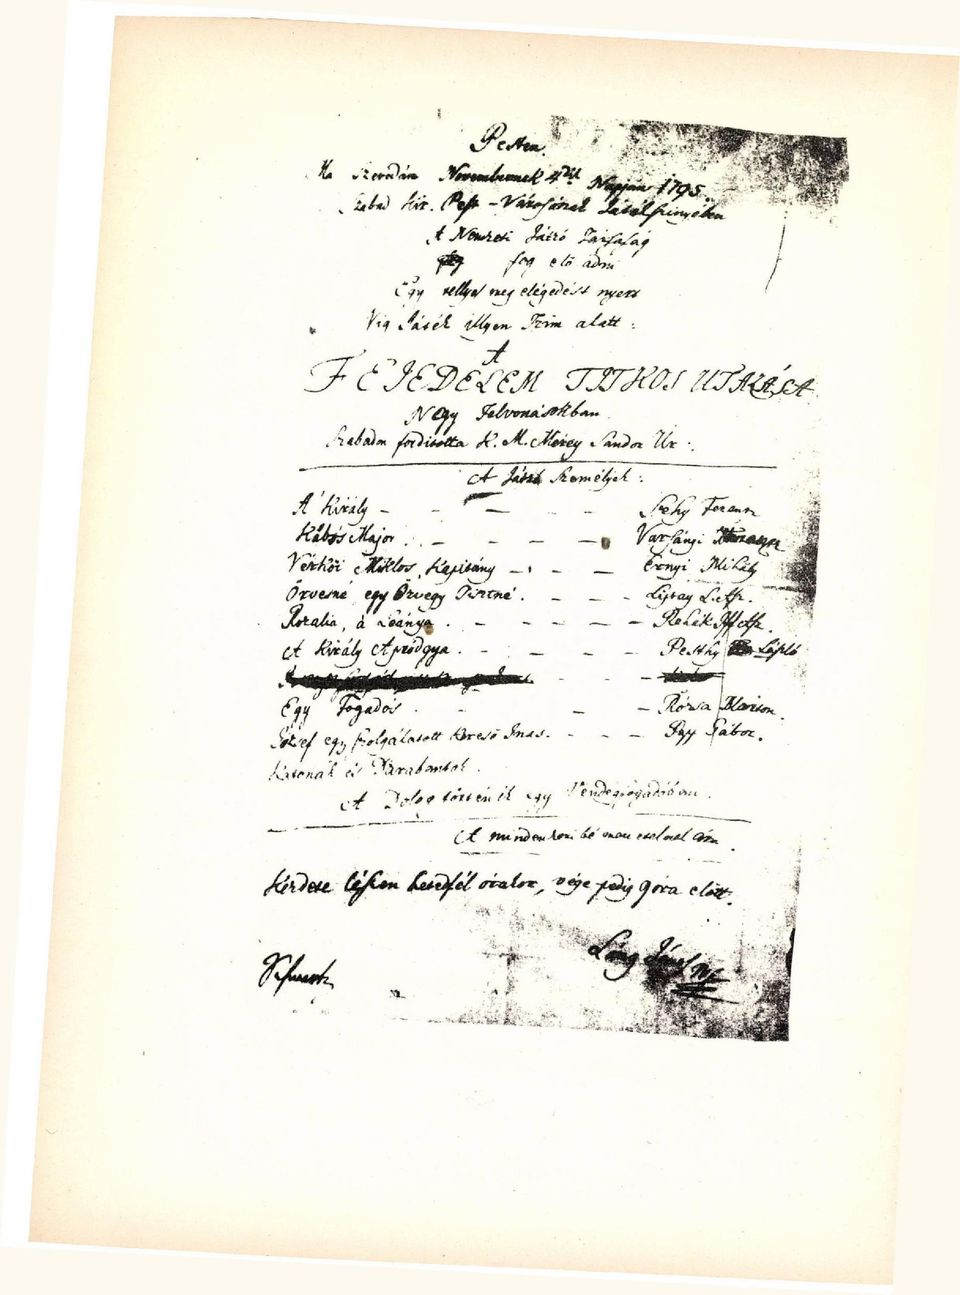 Pesten.
Ma Szerdán Novembernek 4dik Napján 1795.
Szabad Kir. Pest-Városának Játékszinyében
A Nemzeti Játzó Társaság
fog elő adni
Egy mellyes meg elégedést nyert
Víg Játék illyen Tzim alatt :
A
FEJEDELEM TITKOS UTAZÁSA
Négy Felvonásokban
Szabadon fordította K. M. Mérey Sándor Úr.
A Játzó Személyek :
A' Király - - - - - Séhy Ferentz
Kábós Major - - - - Varsányi
Vérhői Miklos, Kapitány - - - Ernyi Mihály
Örvesné egy Özvegy Tisztné. - - - Liptay L. Assz.
Rozalia, a Leánya. - - - - Rehák Assz.
A Király Apródgya. - - - - Pesthy László
Egy Fogadós. - - - Rózsa Márton.
József egy szolgálatott Kereső Inas. - - - Ugy Gábor.
Katonák és Darabantok.
A Dolog történik egy Vendégfogadóban.
A mindenkori bé
Kezdete lészen hetedfél órakor, vége pedig 9 óra elött.
Láng János
Schwartz